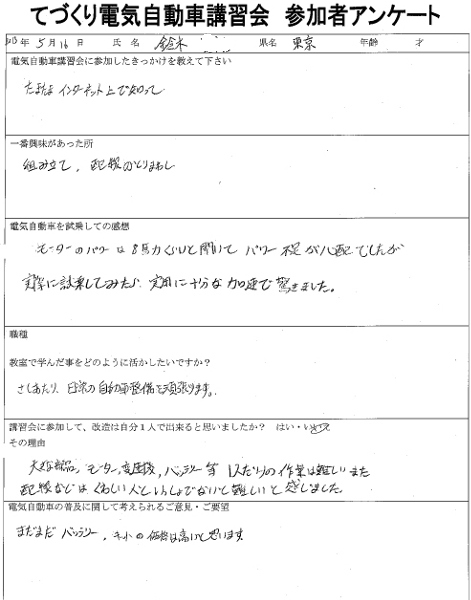 てづくり電気自動車講習会 参加者アンケート
年 5月16日 氏 名 鈴木 県名 東京 年齢 才
電気自動車講習会に参加したきっかけを教えて下さい
たまたま インターネット上で知って
一番興味があった所
組み立て, 配線のとりまわし
電気自動車を試乗しての感想
モーターのパワーは8馬力ぐらいと聞いて パワー不足が心配でしたが
実際に試乗してみたら 実用に十分な加速で驚きました。
職種
教室で学んだ事をどのように活かしたいですか?
さしあたり, 日常の自動車整備を頑張ります。
講習会に参加して、改造は自分1人で出来ると思いましたか? はい・いいえ
その理由
大きな部品, モーター, 変速機, バッテリー 等 1人だけの作業は難しいまた
配線などは くわしい人といっしょでないと難しいと感じました。
電気自動車の普及に関して考えられるご意見・ご要望
まだまだ バッテリー, キットの価格は高いと思います